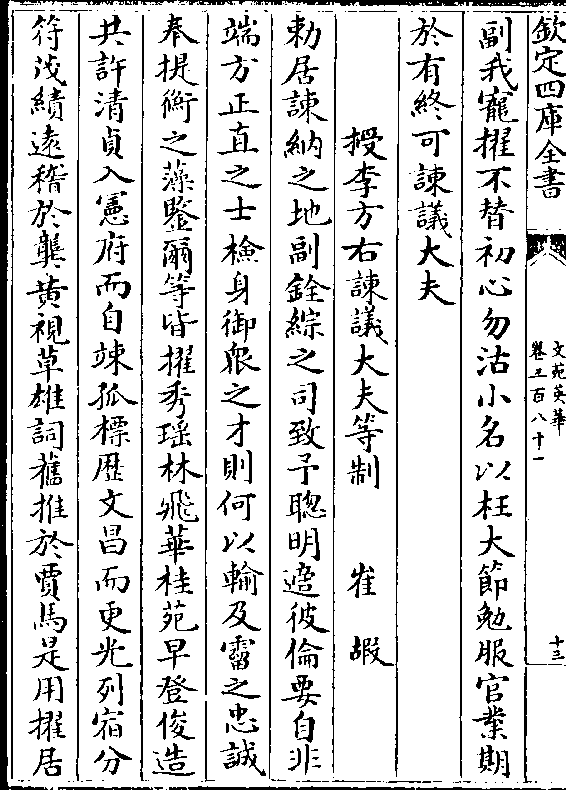 欽定四庫全書
文苑英華
卷五百八十一
十三
副我寵擢不替初心勿沽小名以枉大節勉服官業期
於有終可諫議大夫
授李方右諫議大夫等制 崔嘏
勅居諫納之地副銓綜之司致予聰明遴彼倫要自非
端方正直之士檢身御衆之才則何以輸及霤之忠誠
奉提衡之藻鑒爾等皆擢秀瑶林飛華桂苑早登俊造
共許清貞入憲府而自竦孤標歴文昌而更光列宿分
符茂績逺稽於龔黄視草雄詞舊推於賈馬是用擢居